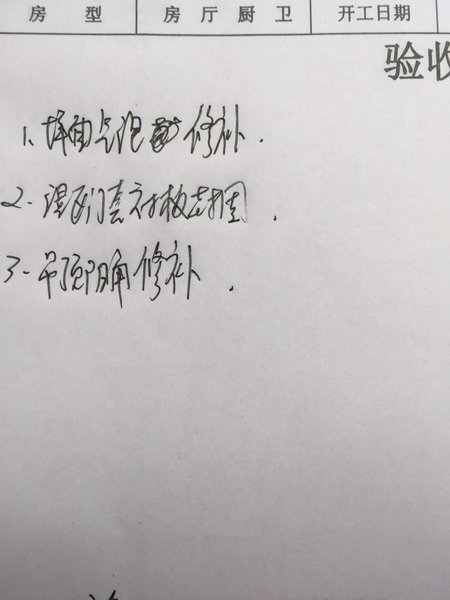 房 型 房 厅 厨 卫 开工日期
验收
1、墙面气泡修补.
2. 门套衬板
3. 吊顶阴角修补.